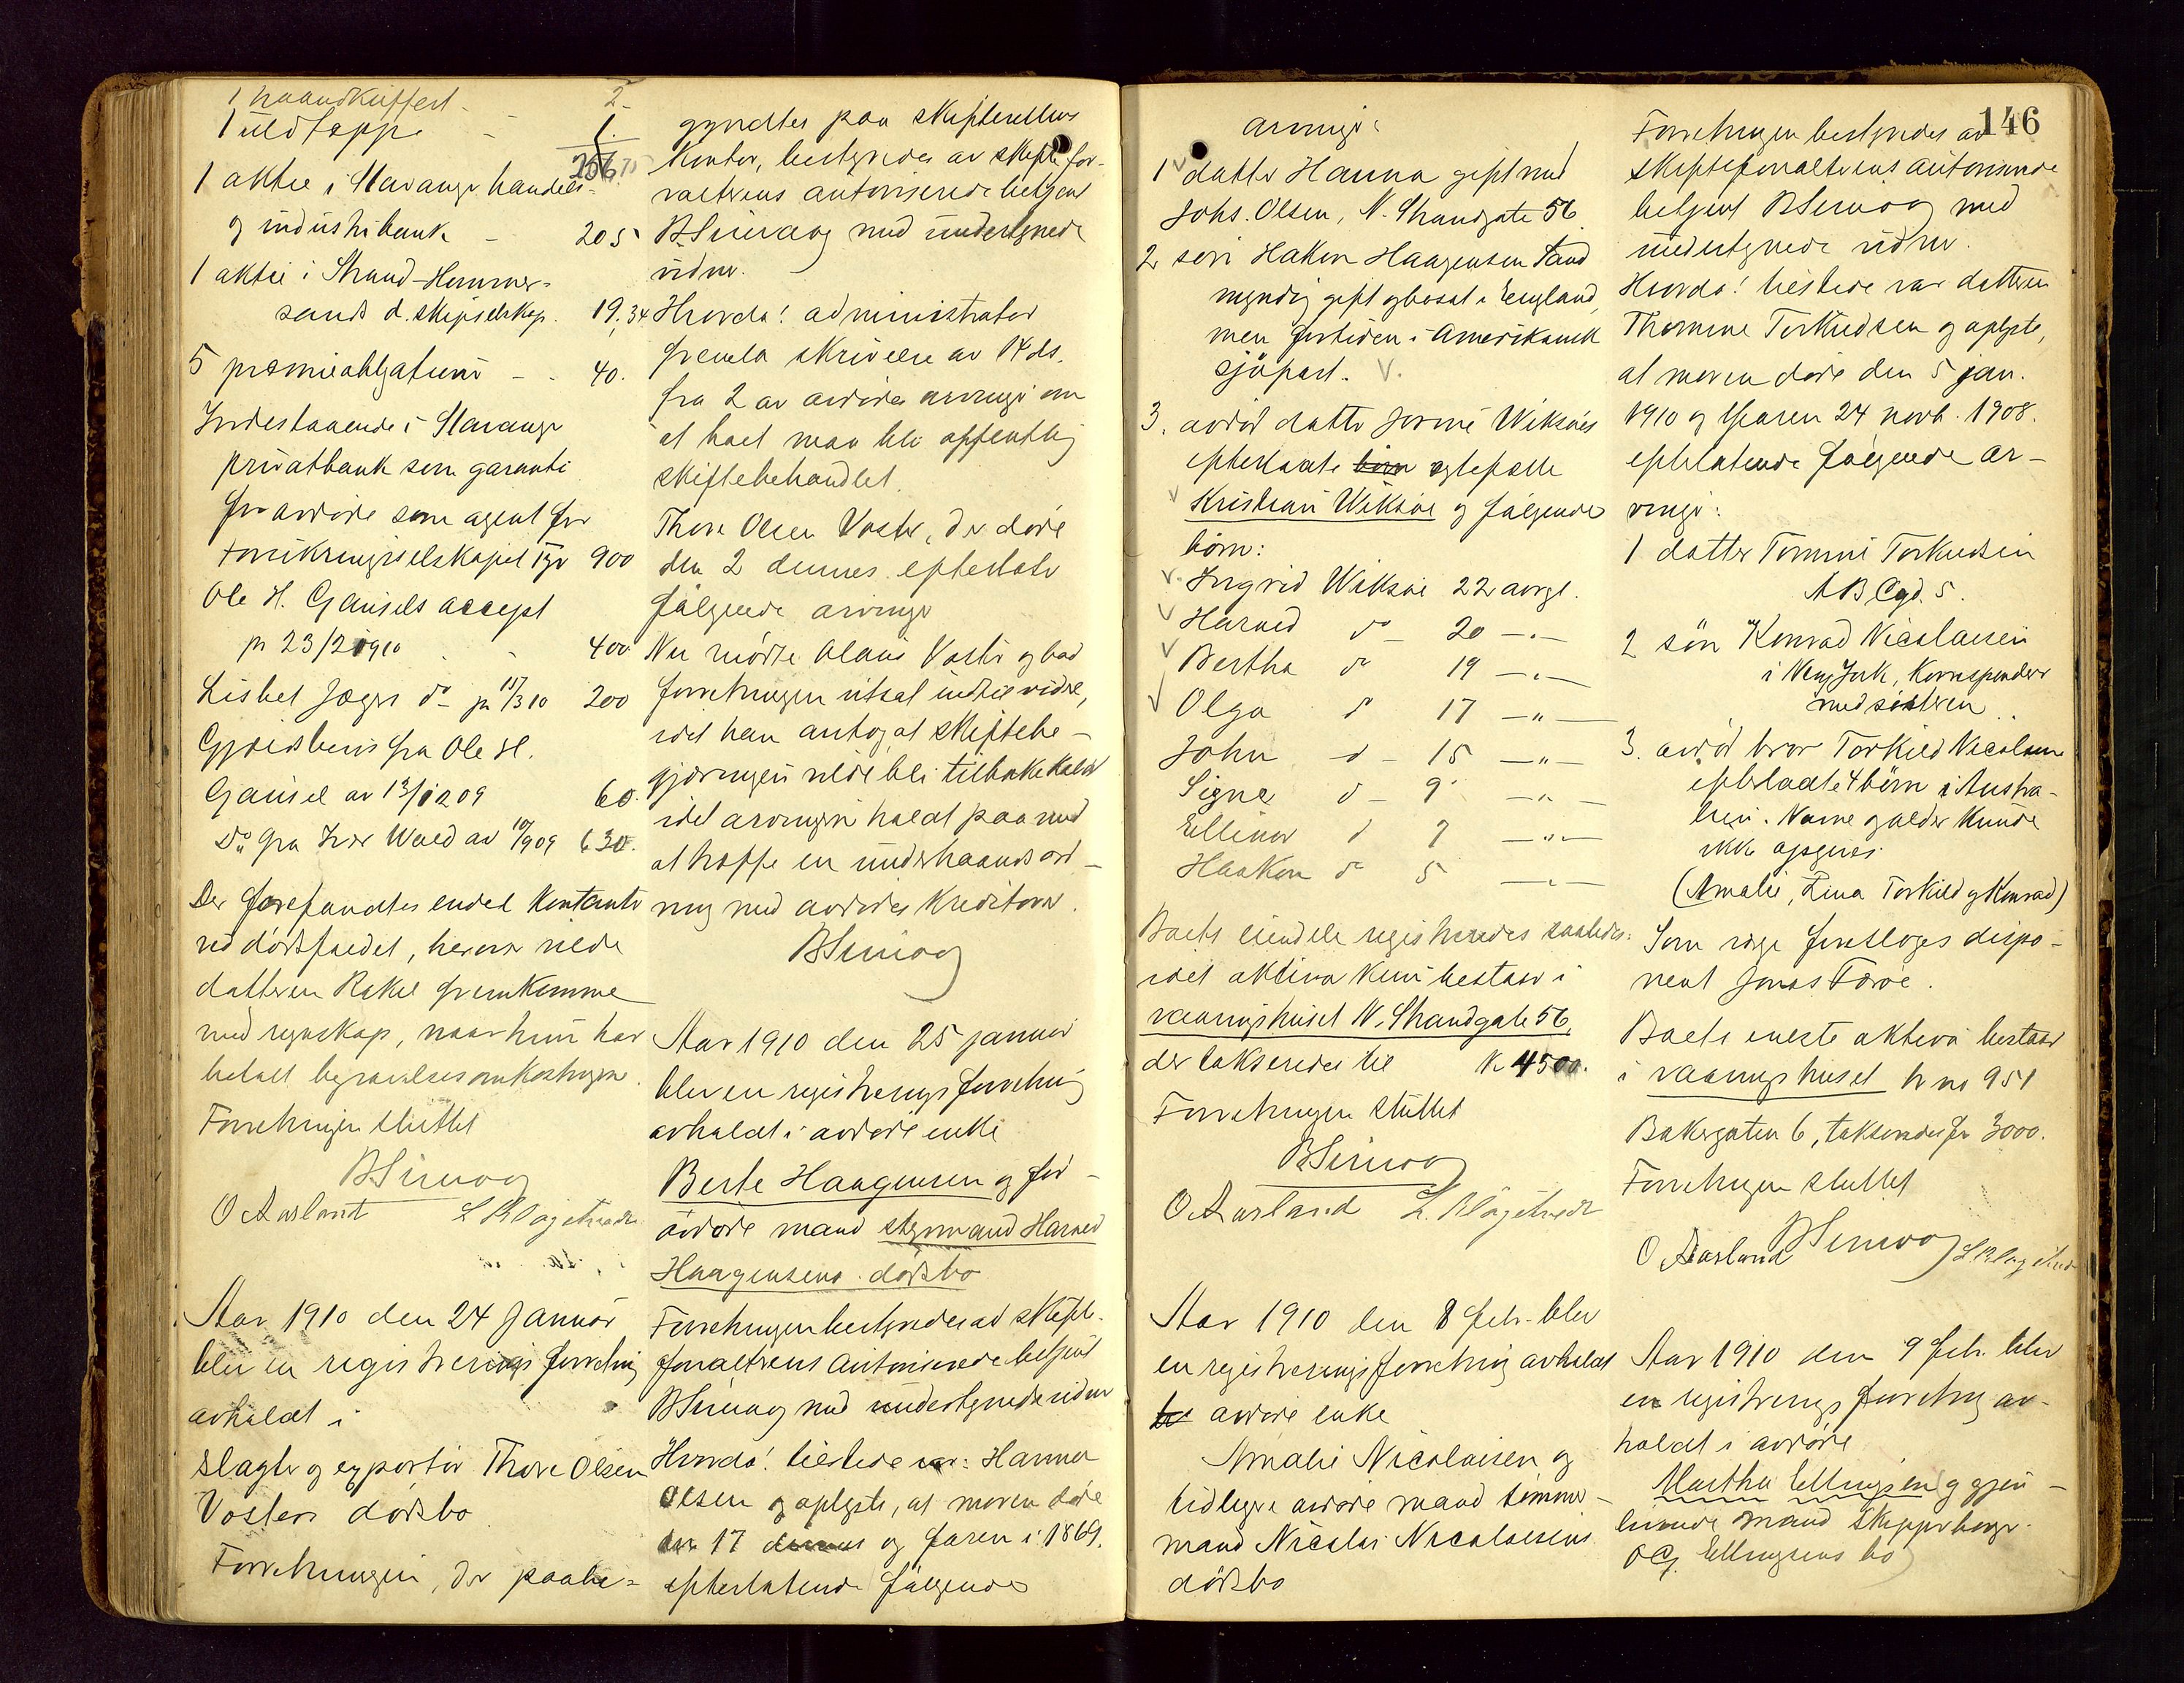 1 haandkuffert - 2.
1 uldteppe - 1.
256.75
1 aktie i Stavanger handels-
og industribank - 205
1 aktie i Strand-Hommer-
sands d. skipselskap. 19,34
5 præmieobligationer - - 40.
Indestaaende i Stavanger
privatbank som garanti
for avdøde som agent for
Forsikringsselskapet Tyr 900
Ole H. Gausels accept
pr 23/2 1910 - - 400
Lisbet Jæger do pr 11/3 10 200
Gjældsbevis fra Ole H.
Gausel av 13/12 09 60.
Do fra Iver Wald av 10/9 09 630.
Der forefandtes endel kontanter
ved dødsfaldet, herover vilde
datteren Rakel fremkomme
med regnskap, naar hun har
betalt begravelsesomkostningerne.
Forretningen sluttet
BSimog
O Aasland L Blagestvedt
Aar 1910 den 24 januar
blev en registreringsforretning
avholdt i
slagter og exportør Thore Olsen
Vosters dødsbo
Forretningen, der paabe-
gyndtes paa skifterettens
kontor, bestyredes av skiftefor-
valterens autoriserede betjent
BSimog med undertegnede
vidner.
Hvorda! administrator
fremla skrivelse av 14 ds.
fra 2 av avdødes arvinger om
at boet maa bli offentlig
skiftebehandlet.
Thore Olsen Voster, der døde
den 2 dennes efterlater
følgende arvinger
Nu mødte Olaus Voster og bad
forretningen utsat indtil videre,
idet han antog at skiftebe-
gjæringen vilde bli tilbakekaldt
idet arvingerne holdt paa med
at træffe en underhaandsord-
ning med avdødes kreditorer.
BSimog
Aar 1910 den 25 januar
blev en registreringsforretning
avholdt i avdøde enke
Berte Haagensen og før-
avdøde mand styrmand Harald
Haagensens dødsbo
Forretningen bestyredes av skifte-
forvalterens autoriserede betjent
BSimog med undertegnede vidner
Hvorda! tilstede var: Hanna
Olsen og oplyste, at moren døde
den 17 dennes og faren i 1869.
efterlatende følgende
arvinger:
1 datter Hanna gift med
Johs. Olsen, N. Strandgate 56
2 søn Hakon Haagensen Sand
myndig gift og bosat i England,
men fortiden i Amerikansk
sjøfart.
3. avdød datter Jorine Wiksøes
efterlatte børn egtefælle
Kristian Wiksøe og følgende
børn:
Ingrid Wiksøe 22 aar gl.
Harald do 20 -"-
Bertha do 19 -"-
Olga do 17 -"-
John do 15 -"-
Signe do 9 -"-
Ellinor do 7 -"-
Haakon do 5 -"-
Boets eiendele registreredes saaledes:
idet aktiva kun bestaar i
vaaningshuset N. Strandgate 56,
der takseredes til kr 4500.
Forretningen sluttet
BSimog
O Aasland L. Blagestvedt
Aar 1910 den 8 febr. blev
en registreringsforretning avholdt
i avdøde enke
Amalie Nicolaisen og
tidligere avdøde mand tømmer-
mand Nicolai Nicolaisens
dødsbo
146
Forretningen bestyredes av
skifteforvalterens autoriserede
betjent BSimog med
undertegnede vidner.
Hvorda! tilstede var datteren
Thomine Torkildsen og oplyste,
at moren døde den 5 jan.
1910 og faren 24 novb. 1908.
efterlatende følgende ar-
vinger:
1 datter Tomine Torkildsen
ABCgd. 5.
2 søn Konrad Nicolaisen
i New York, korresponderer
med søsteren
3. avdød bror Torkild Nicolaisen
efterlatte 4 børn i Austra-
lien. Navne og alder kunde
ikke opgives
(Amalie, Lina Torkild og Konrad)
Som verge foresloges dispo-
nent Jonas Færøe.
Boets eneste aktiva bestaar
i vaaningshuset br no 951
Bakergaten 6, takseredes for 3000.
Forretningen sluttet
BSimog
O Aasland L Blagestvedt
Aar 1910 den 9 febr. blev
en registreringsforretning av-
holdt i avdøde
Martha Ellingsen og gjen-
levende mand skipsbygger
O. G. Ellingsens bo